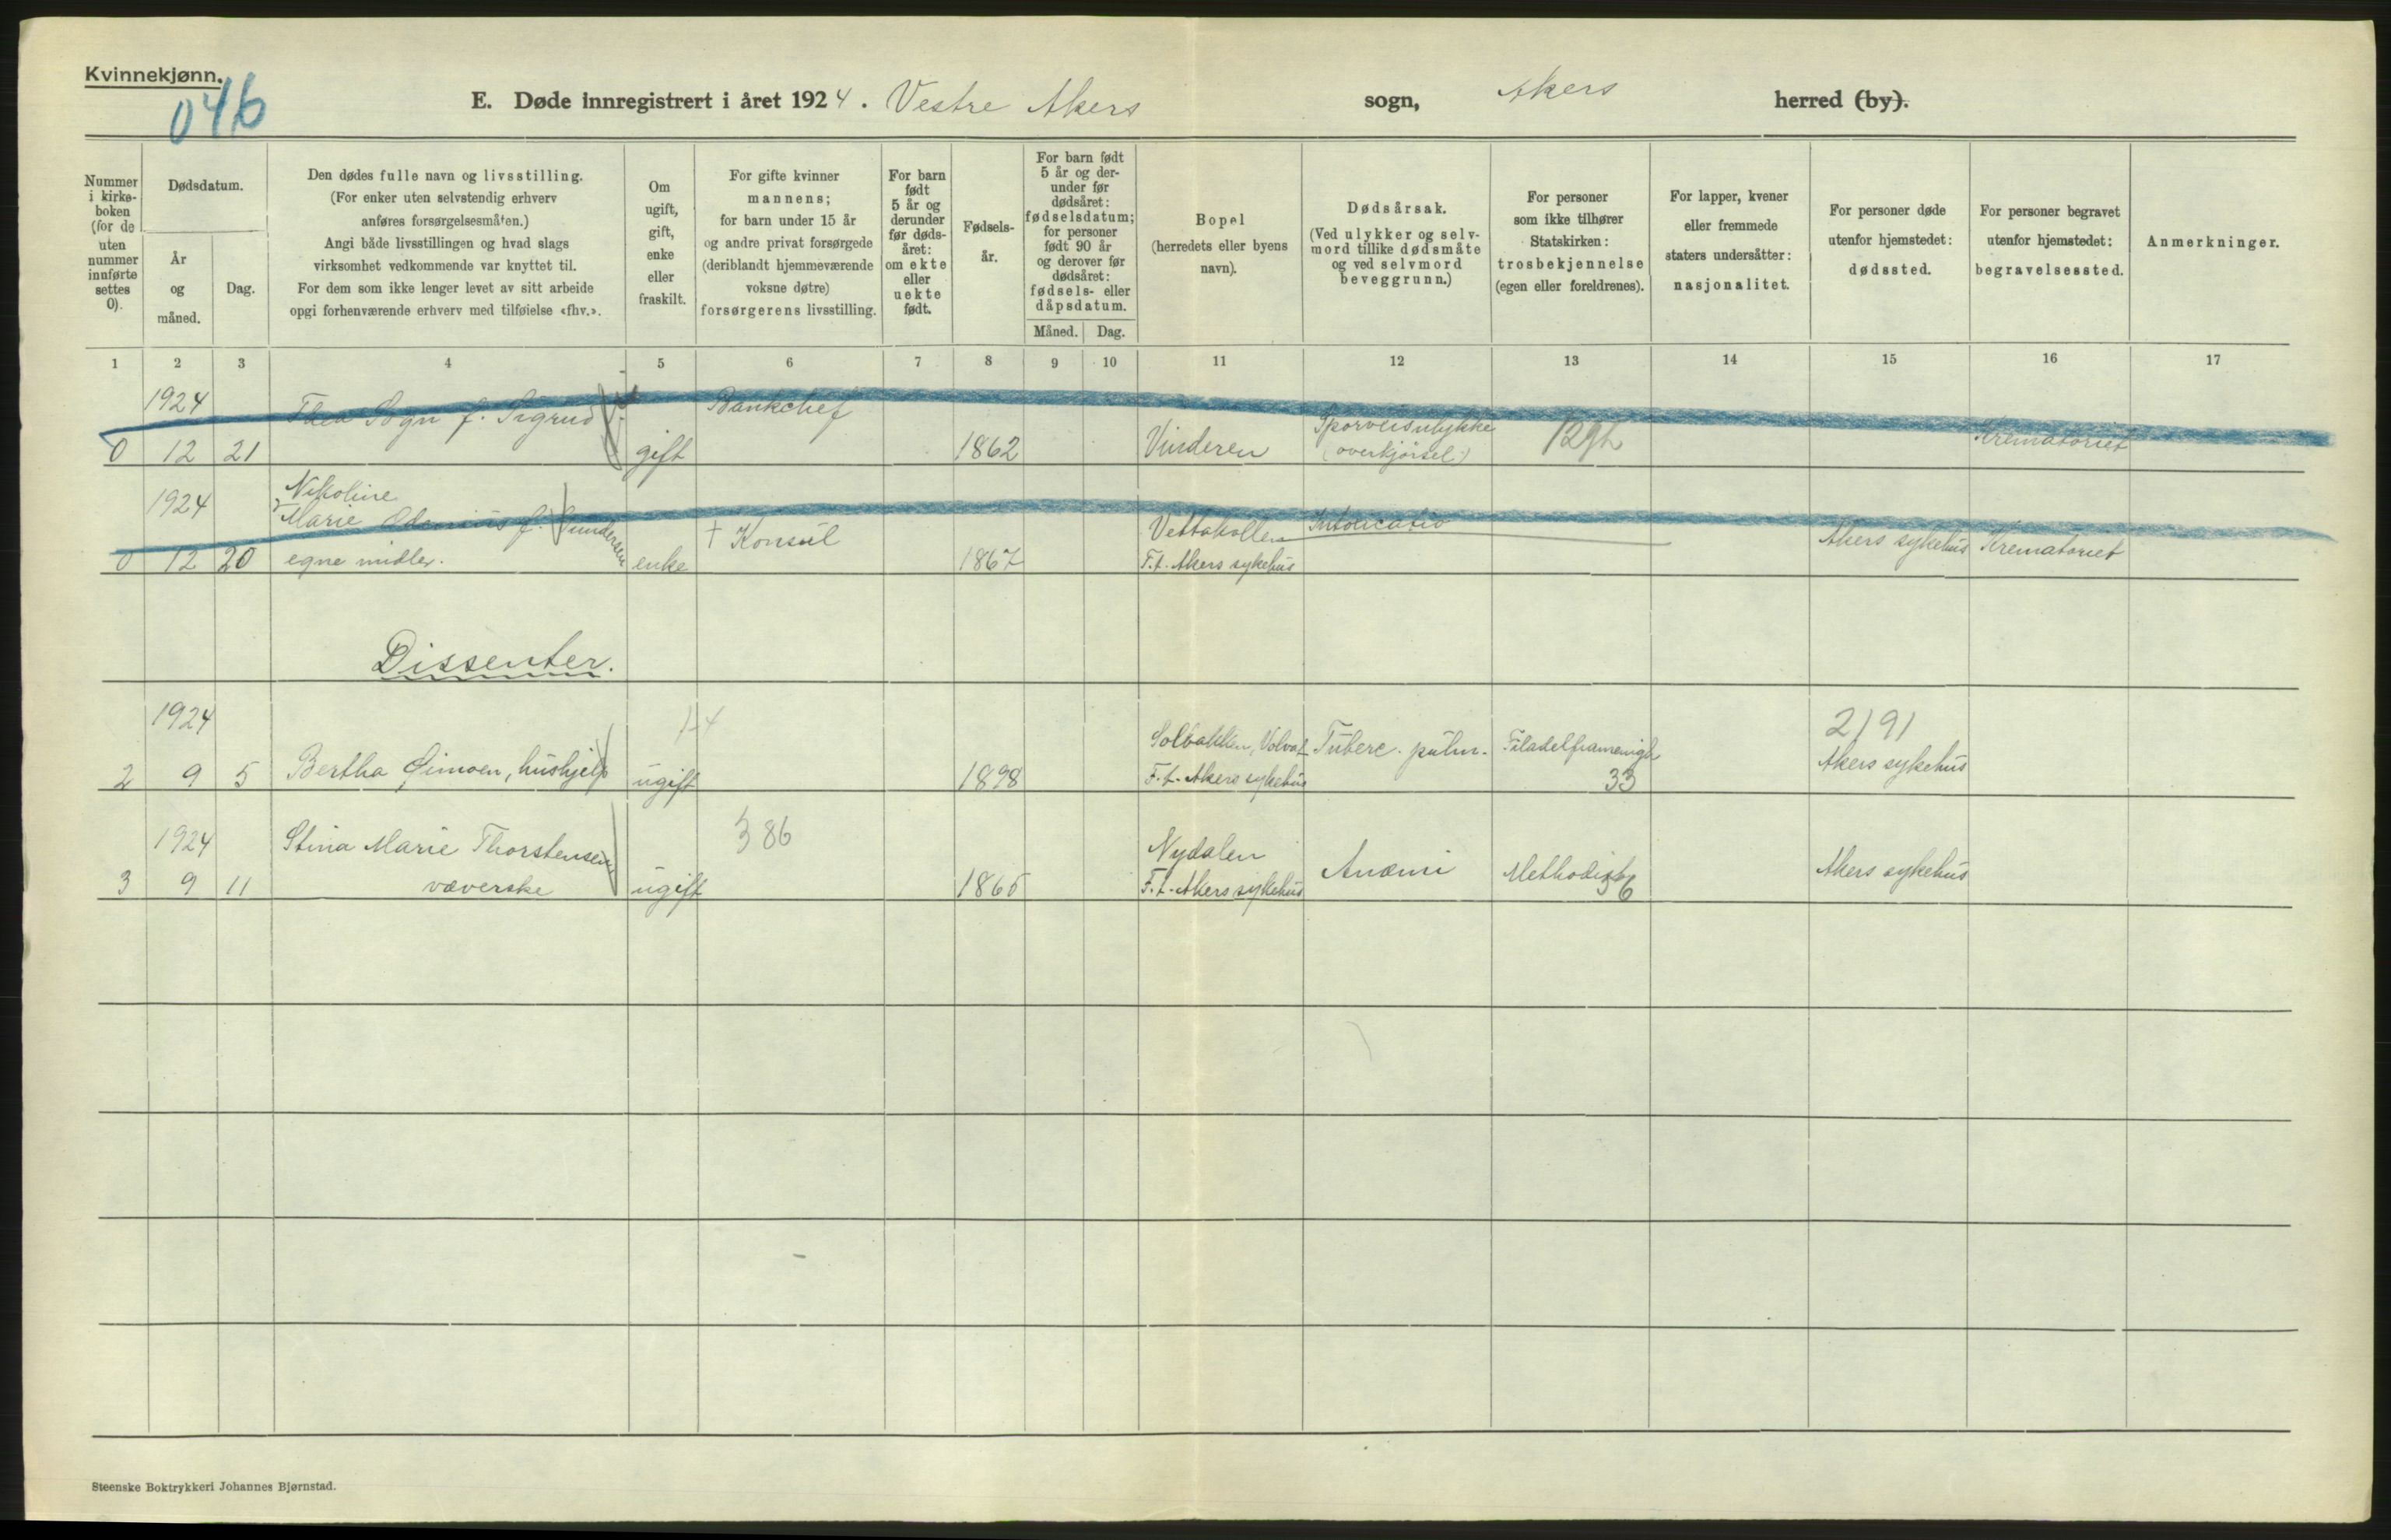 Kvinnekjønn.
046
E. Døde innregistrert i året 1924. Vestre Akers sogn, Akers herred (by).
Nummer i kirkeboken (for de uten nummer innførte settes 0).
Dødsdatum.
År og måned.
Dag.
Den dødes fulle navn og livsstilling.
(For enker uten selvstendig erhverv
anføres forsørgelsesmåten.)
Angi både livsstillingen og hvad slags
virksomhet vedkommende var knyttet til.
For dem som ikke lenger levet av sitt arbeide
opgi forhenværende erhverv med tilføielse «fhv.».
Om ugift, gift, enke eller fraskilt.
For gifte kvinner
mannens;
for barn under 15 år
og andre privat forsørgede
(deriblandt hjemmeværende
voksne døtre)
forsørgerens livsstilling.
For barn født 5 år og derunder før dødsåret: om ekte eller uekte født.
Fødselsår.
For barn født 5 år og derunder før dødsåret: fødselsdatum; for personer født 90 år og derover før dødsåret: fødsels- eller dåpsdatum.
Måned. Dag.
Bopel
(herredets eller byens
navn).
Dødsårsak.
(Ved ulykker og selvmord tillike dødsmåte og ved selvmord beveggrunn.)
For personer
som ikke tilhører
Statskirken:
trosbekjennelse
(egen eller foreldrenes).
For lapper, kvener
eller fremmede
staters undersåtter:
nasjonalitet.
For personer døde
utenfor hjemstedet:
dødssted.
For personer begravet
utenfor hjemstedet:
begravelsessted.
Anmerkninger.
1 2 3 4 5 6 7 8 9 10 11 12 13 14 15 16 17
1924 Thea Sogn f. Bankchef Sporveisulykke Krematoriet
0 12 21 gift 1862 Vinderen (overkjørsel) 129h
Nikoline
1924 Marie f. Gundersen † Konsul Vettakollen Intoxicatio Akers sykehus Krematoriet
0 12 20 egne midler. enke 1867 F.t. Akers sykehus
Dissenter.
1924 14 Solbakken, 2191
2 9 5 Bertha Simoen, hushjelp ugift 1898 F.t. Akers sykehus Tuberc. pulm. 33 Akers sykehus
1924 Stina Marie Thorstensen 386 Nydalen
3 9 11 væverske ugift 1865 F.t. Akers sykehus Anæmi Akers sykehus
Steenske Boktrykkeri Johannes Bjørnstad.